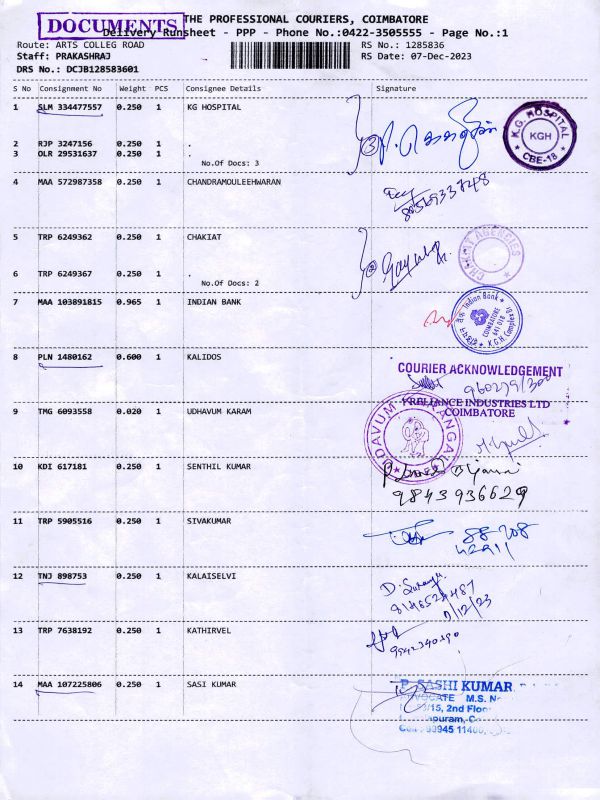 DOCUMENTS
THE PROFESSIONAL COURIERS, COIMBATORE
Delivery Runsheet - PPP - Phone No.:0422-3505555 - Page No.:1
Route: ARTS COLLEG ROAD
RS No.: 1285836
Staff: PRAKASHRAJ
RS Date: 07-Dec-2023
DRS No.: DCJB128583601
S No Consignment No Weight PCS Consignee Details Signature
1 SLM 334477557 0.250 1 KG HOSPITAL
K.G. HOSPITAL
KGH
CBE-18
2 RJP 3247156 0.250 1 .
3 OLR 29531637 0.250 1 .
No.Of Docs: 3
4 MAA 572987358 0.250 1 CHANDRAMOULEEHWARAN
5 TRP 6249362 0.250 1 CHAKIAT
CHAKIAT AGENCIES
6 TRP 6249367 0.250 1 .
No.Of Docs: 2
7 MAA 103891815 0.965 1 INDIAN BANK
Indian Bank
COIMBATORE
641 018
K.G.H. Complex
8 PLN 1480162 0.600 1 KALIDOS
COURIER ACKNOWLEDGEMENT
RELIANCE INDUSTRIES LTD
COIMBATORE
9 TMG 6093558 0.020 1 UDHAVUM KARAM
10 KDI 617181 0.250 1 SENTHIL KUMAR
9843936629
11 TRP 5905516 0.250 1 SIVAKUMAR
12 TNJ 898753 0.250 1 KALAISELVI
13 TRP 7638192 0.250 1 KATHIRVEL
14 MAA 107225806 0.250 1 SASI KUMAR
P. SASHI KUMAR
ADVOCATE M.S. No
2nd Floor